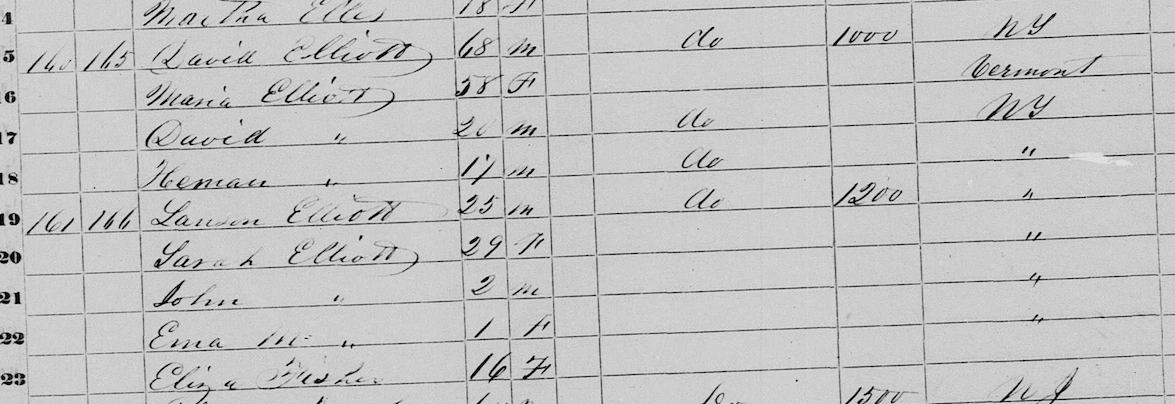 4 Martha Ellis 18 F
5 160 165 David Elliott 68 m do 1000 NY
16 Maria Elliott 58 F Vermont
17 David " 20 m do NY
18 Heman " 17 m do "
19 161 166 Lanson Elliott 25 m do 1200 "
20 Sarah Elliott 29 F "
21 John " 2 m "
22 Ema M " 1 F "
23 Eliza Fisher 16 F
do 1500 N J